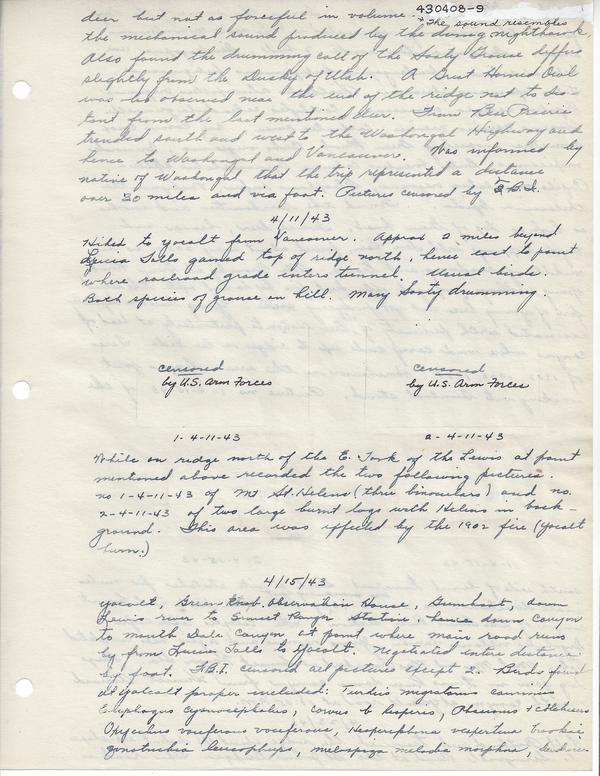 430408-9
deer but not as forceful in volume. * The sound resembles
the mechanical sound produced by the diving nighthawk.
Also found the drumming call of the Sooty Grouse differs
slightly from the Dusky of Utah. A Great Horned Owl
was observed near the end of the ridge not to dis-
tant from the last mentioned deer. From Bear Prairie
trended south and west to the Washougal Highway and
hence to Washougal and Vancouver. Was informed by
native of Washougal that the trip represented a distance
over 30 miles and via foot. Pictures censored by F.B.I.
4/11/43
Hiked to Yacolt from Vancouver. Approx 2 miles beyond
Lucia Falls gained top of ridge north, hence east to point
where railroad grade inters tunnel. Usual birds.
Both species of grouse on hill. Many Sooty drumming.
censored
by U.S. Arm Forces
censored
by U.S. Arm Forces
1-4-11-43
2-4-11-43
While on ridge north of the E. Fork of the Lewis at point
mentioned above recorded the two following pictures.
no 1-4-11-43 of Mt St. Helens (thru binoculars) and no.
2-4-11-43 of two large burnt logs with Helens in back-
ground. This area was effected by the 1902 fire (Yacolt
burn.)
4/15/43
Yacolt, Green Knob, Observation House, Gumboot, down
Lewis river to Sunset Ranger Station, hence down Canyon
to mouth Dale Canyon at point where main road runs
by from Lucia Falls to Yacolt. Negotiated entire distance
by foot. F.B.I. censored all pictures except 2. Birds found
at Yacolt proper included: Turdus migratorius caurinus
Euphagus cyanocephalus, Corvus b. hesperis, Phasianus t.
Oxyechus vociferus vociferus, Hesperiphona vespertina brooksi,
Zonotrichia leucophrys, melospiza melodia morphna,